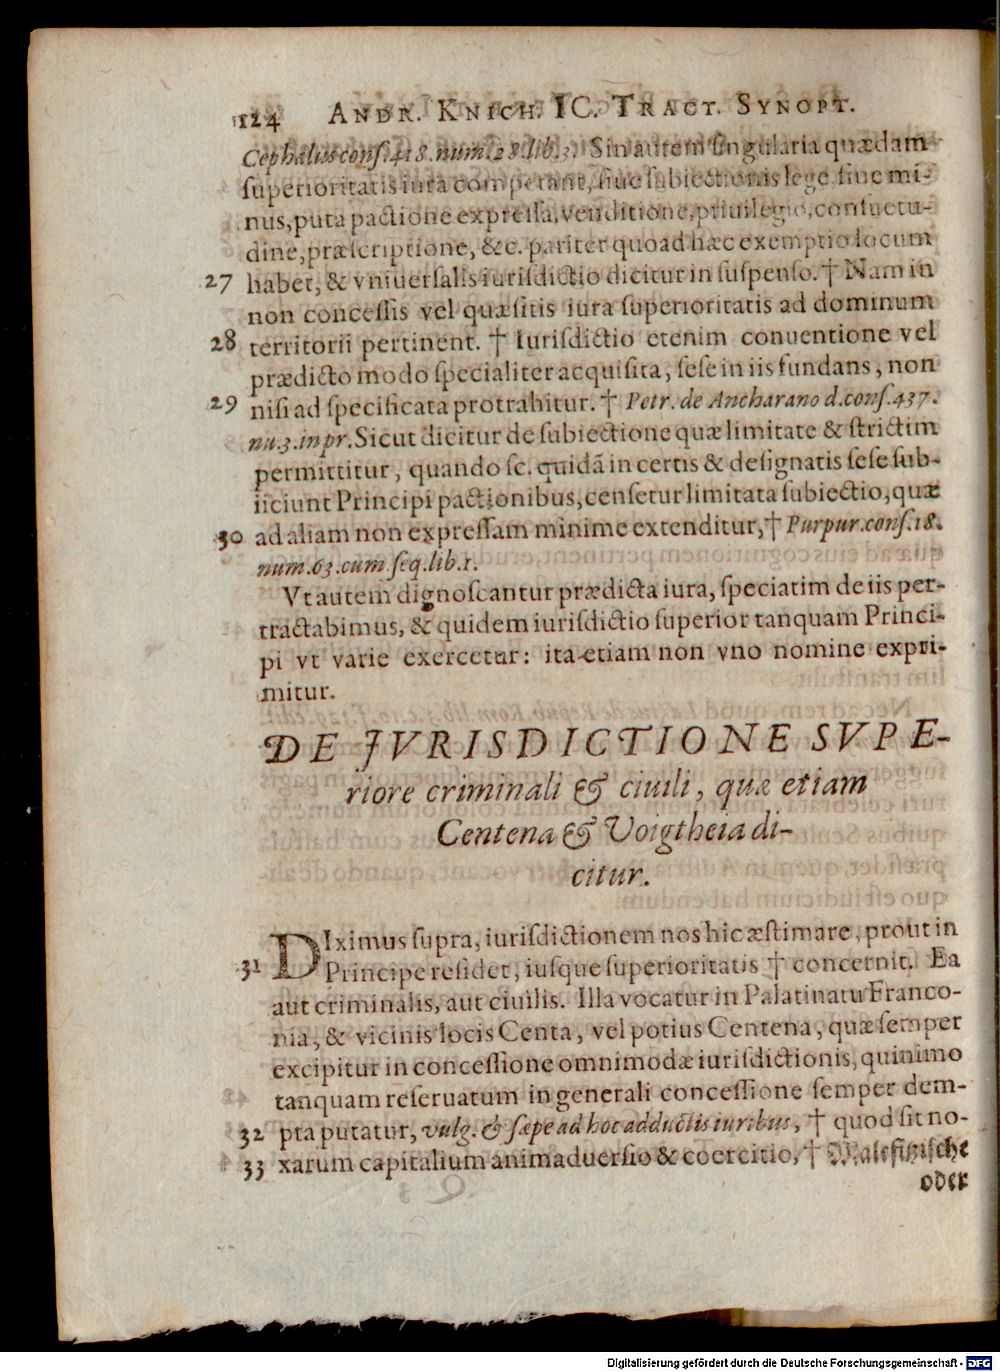 124 ANDR. KNICH. IC. TRACT. SYNOPT.
Cephalus conſ. 418. num. 28. lib. 3. Sin autem ſingularia quædam
ſuperioritatis iura competant, ſiue ſubiectionis lege ſiue mi-
nus, puta pactione expreſſa, venditione, priuilegio, conſuetu-
dine, præſcriptione, &c. pariter quoad hæc exemptio locum
27 habet, & vniuerſalis iurisdictio dicitur in ſuſpenſo. † Nam in
non conceſſis vel quæſitis iura ſuperioritatis ad dominum
28 territorii pertinent. † Iurisdictio etenim conuentione vel
prædicto modo ſpecialiter acquiſita, ſeſe in iis fundans, non
29 niſi ad ſpecificata protrahitur. † Petr. de Ancharano d. conſ. 437.
nu. 3. in pr. Sicut dicitur de ſubiectione quæ limitate & ſtrictim
permittitur, quando ſc. quidā in certis & deſignatis ſeſe ſub-
iiciunt Principi pactionibus, cenſetur limitata ſubiectio, quæ
30 ad aliam non expreſſam minime extenditur, † Purpur. conſ. 18.
num. 63. cum ſeq. lib. 1.
Vt autem dignoſcantur prædicta iura, ſpeciatim de iis per-
tractabimus, & quidem iurisdictio ſuperior tanquam Princi-
pi vt varie exercetur: ita etiam non vno nomine expri-
mitur.
DE JVRISDICTIONE SVPE-
riore criminali & ciuili, quæ etiam
Centena & Voigtheia di-
citur.
DIximus ſupra, iurisdictionem nos hic æſtimare, prout in
31 Principe reſidet, iuſque ſuperioritatis † concernit. Ea
aut criminalis, aut ciuilis. Illa vocatur in Palatinatu Franco-
nia, & vicinis locis Centa, vel potius Centena, quæ ſemper
excipitur in conceſſione omnimodæ iurisdictionis, quinimo
tanquam reſeruatum in generali conceſſione ſemper dem-
32 pta putatur, vulg. & ſæpe ad hoc adductis iuribus, † quod ſit no-
33 xarum capitalium animaduerſio & coercitio, † Malefitziſche
oder
Digitalisierung gefördert durch die Deutsche Forschungsgemeinschaft - DFG